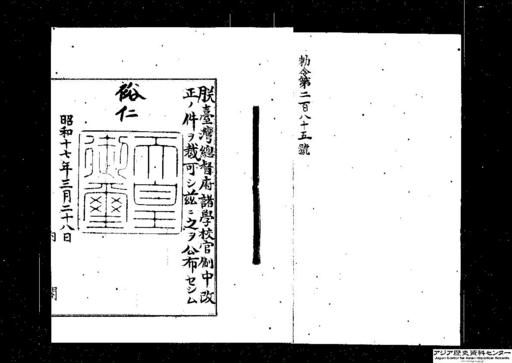 勅令第二百八十五號
朕臺灣總督府諸學校官制中改
正ノ件ヲ裁可シ茲ニ之ヲ公布セシム
裕仁
天皇
御璽
昭和十七年三月二十八日
内閣
アジア歴史資料センター
Japan Center for Asian Historical Records